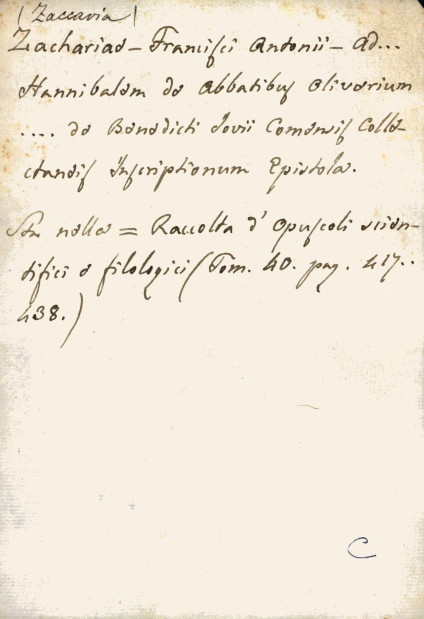 (Zaccaria)
Zachariae - Francisci Antonii - Ad...
Hannibalem de Abbatibus Oliverium
.... de Benedicti Jovii Comensis Colle-
ctaneis Inscriptionum Epistola.
Sta nella = Raccolta d'Opuscoli scien-
tifici e filologici (Tom. 40. pag. 417..
438.)
C